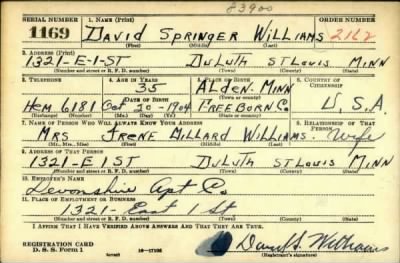 83900
SERIAL NUMBER 1. NAME (Print) ORDER NUMBER
1169 DAVID SPRINGER WILLIAMS 2162
(First) (Middle) (Last)
2. ADDRESS (Print)
1321-E-1-ST DULUTH ST LOUIS MINN
(Number and street or R. F. D. number) (Town) (County) (State)
3. TELEPHONE 4. AGE IN YEARS 5. PLACE OF BIRTH 6. COUNTRY OF CITIZENSHIP
35 ALDEN-MINN
DATE OF BIRTH (Town or county)
HEM 6181 Oct 20-1904 FREEBORN Co. U.S.A
(Exchange) (Number) (Mo.) (Day) (Yr.) (State or country)
7. NAME OF PERSON WHO WILL ALWAYS KNOW YOUR ADDRESS 8. RELATIONSHIP OF THAT PERSON
MRS IRENE WILLIAMS. Wife
(Mr., Mrs., Miss) (First) (Middle) (Last)
9. ADDRESS OF THAT PERSON
1321-E 1 ST DULUTH ST LOUIS MINN
(Number and street or R. F. D. number) (Town) (County) (State)
10. EMPLOYER'S NAME
Devonshire Apt Co
11. PLACE OF EMPLOYMENT OR BUSINESS
1321-East 1 St
(Number and street or R. F. D. number) (Town) (County) (State)
I AFFIRM THAT I HAVE VERIFIED ABOVE ANSWERS AND THAT THEY ARE TRUE.
REGISTRATION CARD
D. S. S. Form 1 16-17105 David S. Williams
(Registrant's signature)